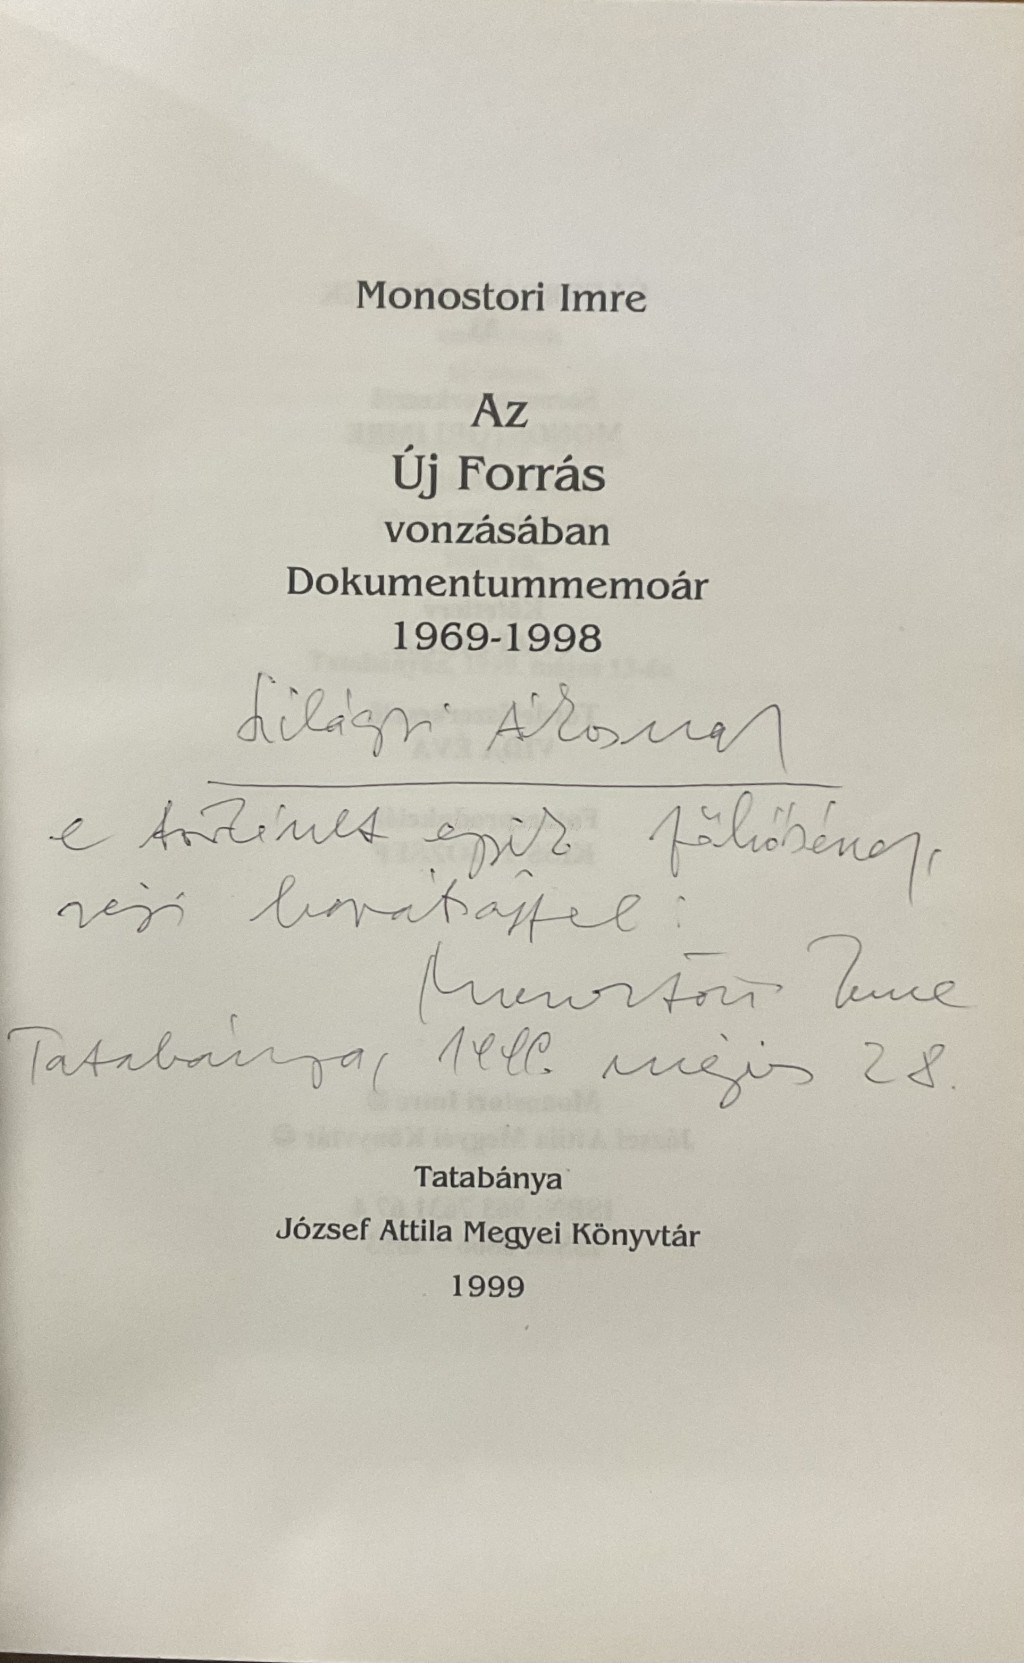 Monostori Imre
Az
Új Forrás
vonzásában
Dokumentummemoár
1969-1998
Szilágyi Ákosnak
e történet egyik főhősének,
régi barátsággal:
Monostori Imre
Tatabánya, 1999. május 28.
Tatabánya
József Attila Megyei Könyvtár
1999